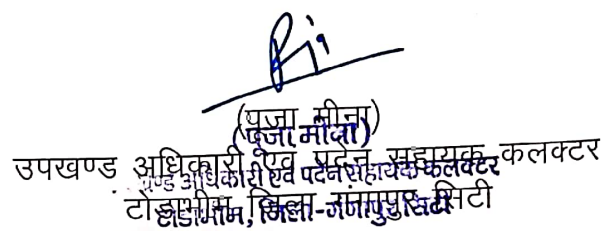 (पूजा मीना)
(पूजा मीना)
उपखण्ड अधिकारी एवं पदेन सहायक कलक्टर
खण्ड अधिकारी एवं पदेन सहायक कलक्टर
टोडाभीम, जिला गंगापुर सिटी
टोडाभीम, जिला-गंगापुर सिटी